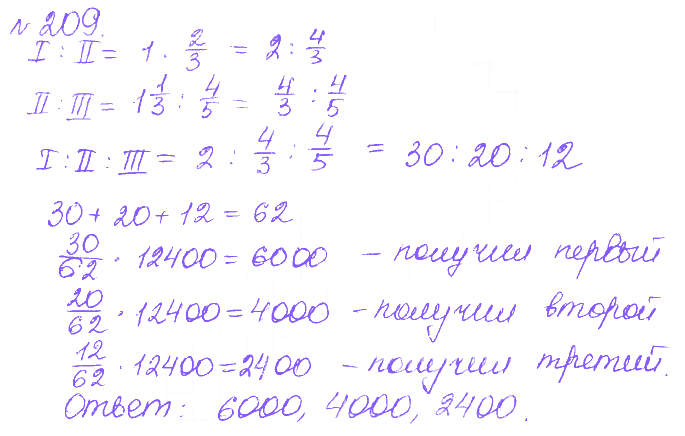 № 209.
I : II = 1 : 2/3 = 2 : 4/3
II : III = 1 1/3 : 4/5 = 4/3 : 4/5
I : II : III = 2 : 4/3 : 4/5 = 30 : 20 : 12
30 + 20 + 12 = 62
30/62 · 12400 = 6000 – получил первый
20/62 · 12400 = 4000 – получил второй
12/62 · 12400 = 2400 – получил третий.
Ответ: 6000, 4000, 2400.